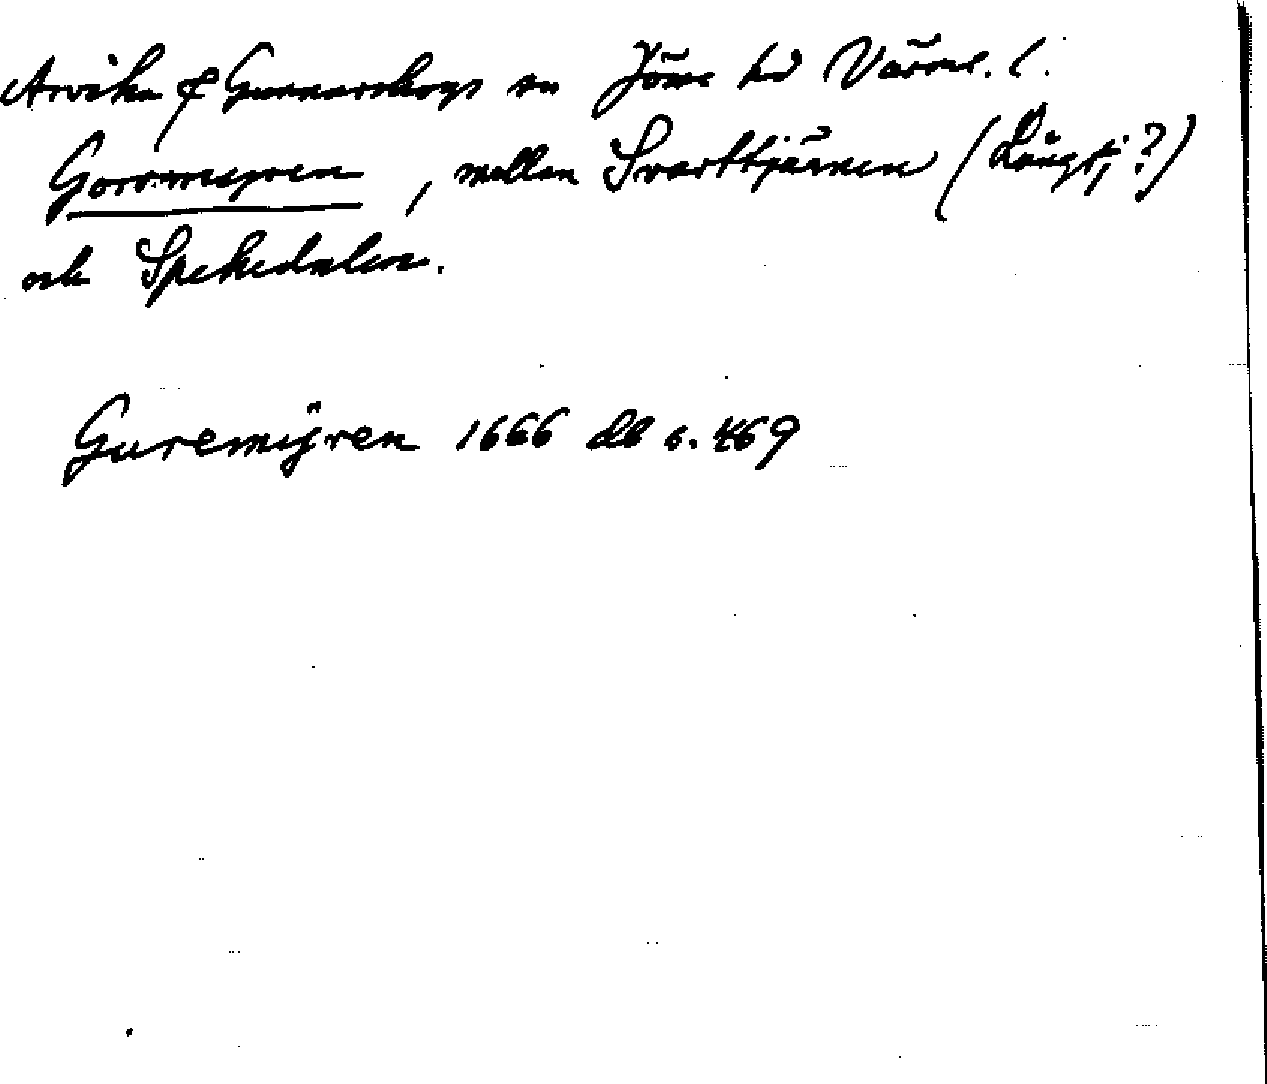 Arvika & Gunnarskogs sn Jösse hd Värml. l.
Gorrmyren, mellan Svarttjärnen (Långtj.?)
och Spekedalen.
Guremÿren 1666 db s. 469